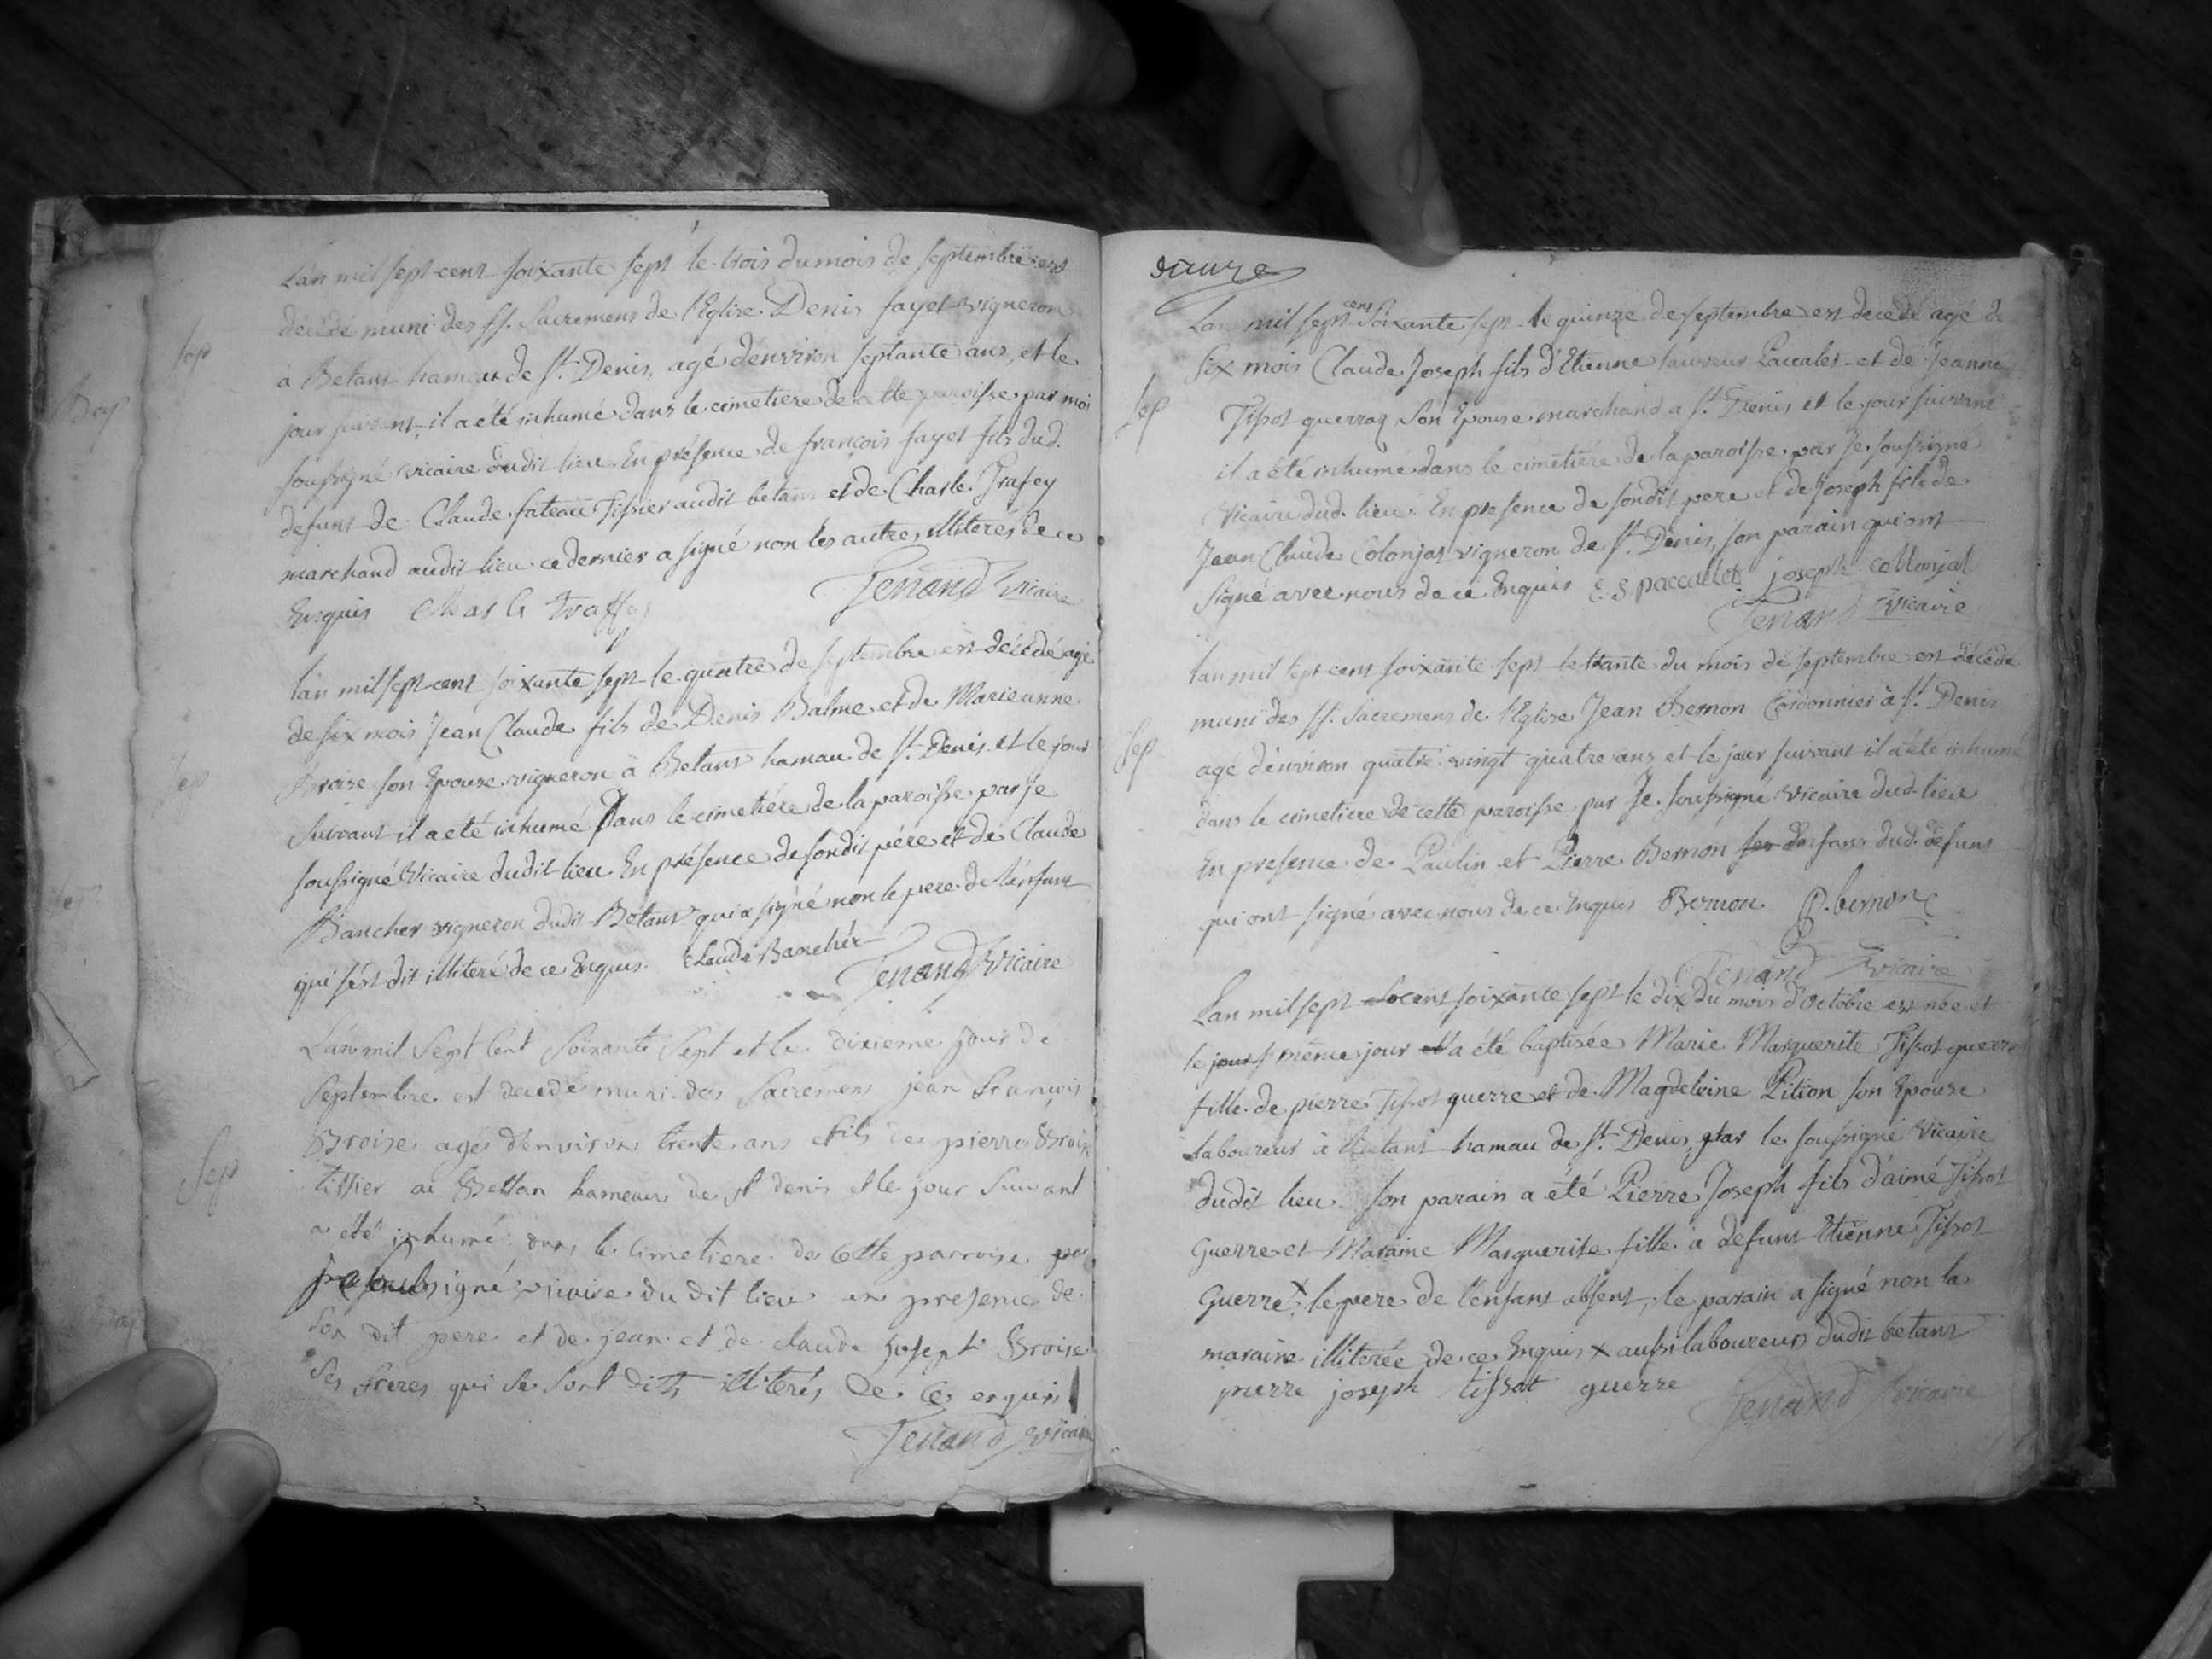 Lan mil sept cent soixante sept le trois du mois de septembre est
décédé muni des ss. Sacremens de l'Eglise Denis fayet vigneron
Sep
à Betant hamau de st. Denis, agé denviron septante ans, et le
jour suivant, il a été inhumé dans le cimetiere de cette paroisse par moi
soussigné vicaire dudit lieu En présence de françois fayet fils dud.
defunt de Claude fateau Tissier audit betant et de Charle Trafey
marchand audit lieu ce dernier a signé non les autres illiterés de ce
Enquis Charle traffey Tenand Vicaire
lan mil sept cent soixante sept le quatre de septembre est décédé agé
de six mois Jean Claude fils de Denis Balme et de Marieanne
Sep
Broise son Epouse vigneron à Betant hamau de st. Denis et le jour
suivant il a eté inhumé Dans le cimetiére de la paroisse par je
soussigné Vicaire dudit lieu En présence de sondit pére et de Claude
Bancher vigneron dudit Betant qui a signé non le pere de lénfant
qui s'est dit illiteré de ce Enquis. Claude Bancher Tenand Vicaire
Lan mil Sept Cent Soixante Sept et le dixieme jour de
Septembre est decedé muni des Sacremens jean francois
Broise agé d'environ trente ans fils de pierre Broise
Sep
tissier a Bettan hameau de st denis et le jour Suivant
a été inhumé dans le Cimetiere de Cette parroisse par
je soussigné vicaire du dit lieu en presence de
Son dit pere et de jean et de claude joseph Broise
Ses freres qui se sont dits illiterés de Ce enquis
Tenand vicaire
Lan mil sept cent Soixante sept le quinze de septembre est decedé agé de
six mois Claude Joseph fils d'Etienne sauveur Paccalet et de Jeanne
Sep
Tissot guerraz son Epouse marchand a st. Denis et le jour suivant
il a été inhumé dans le cimetiére de la paroisse par Je soussigné
Vicaire dud. lieu En presence de sondit pere et de Joseph fils de
Jean Claude Colonjat vigneron de st. Denis, son parain qui ont
Signé avec nous de ce Enquis E. S paccallet joseph collonjat
Tenand Vicaire
lan mil sept cent soixante sept le trante du mois de septembre est décédé
muni des ss. Sacremens de l'Eglise Jean Bernon Cordonnier à st. Denis
Sep
agé d'environ quatre vingt quatre ans et le jour suivant il a été inhumé
dans le cimetiere de cette paroisse par Je soussigné Vicaire dud. lieu
En presence de Paulin et Pierre Bernon ses Enfans dud. defunt
qui ont signé avec nous de ce Enquis Bernon P. bernon
Tenand Vicaire
Lan mil sept cent soixante sept le dix du mois d'octobre est née et
le jour même jour a été baptisée Marie Marguerite Tissot guerre
fille de pierre Tissot guerre et de Magdeleine Pition son Epouse
laboureur à Betant hamau de st. Denis, par le soussigné Vicaire
dudit lieu. Son parain a été Pierre Joseph fils d'aimé Tissot
Guerre et Maraine Marguerite fille a défunt Etienne Tissot
Guerre x le pere de l'enfant absent, le parain a signé non la
maraine illiterée de ce Enquis x aussi laboureur dudit betant
pierre joseph tissot guerre Tenand Vicaire